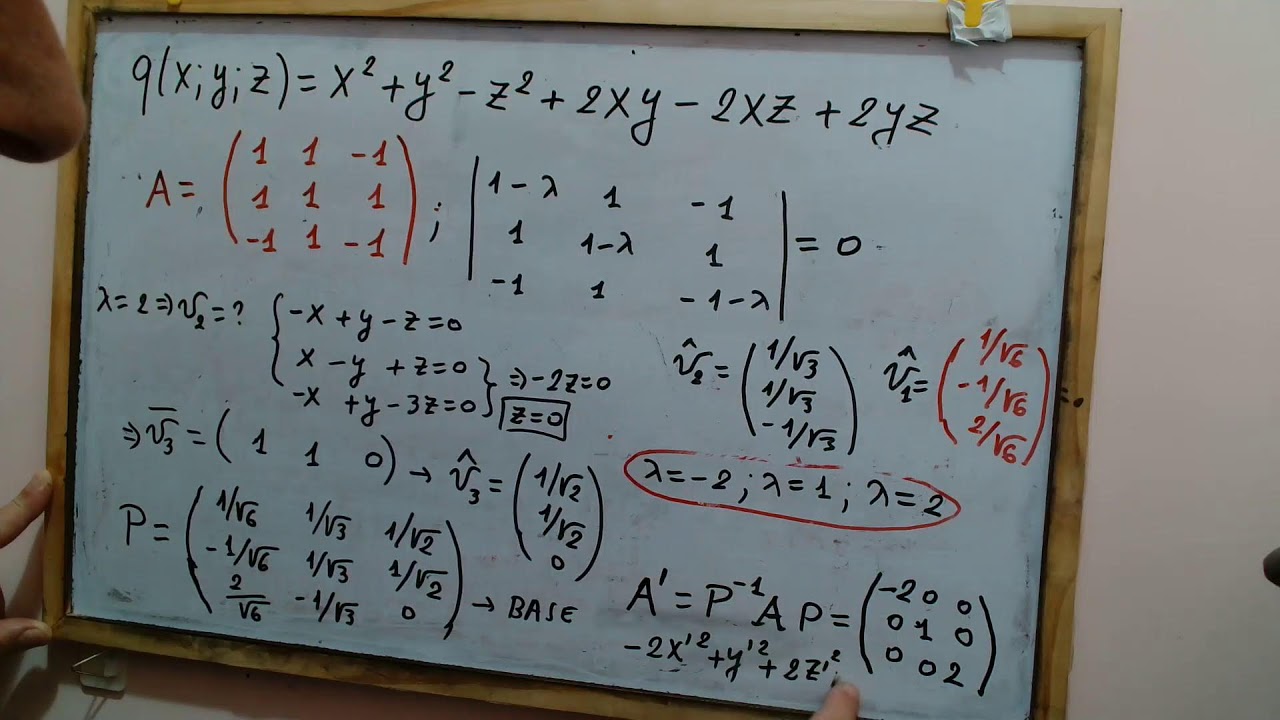 q(x;y;z)=x²+y²-z²+2xy-2xz+2yz
A= (1 1 -1
1 1 1
-1 1 -1) ;
|1-λ 1 -1
1 1-λ 1
-1 1 -1-λ| = 0
λ=2⇒v₂=?
{-x+y-z=0
x-y+z=0
-x+y-3z=0} ⇒-2z=0
z=0
v̂₂= (1/√3
1/√3
-1/√3)
v̂₁= (1/√6
-1/√6
2/√6)
⇒ v̄₃=(1 1 0) → v̂₃= (1/√2
1/√2
0)
λ=-2; λ=1; λ=2
P= (1/√6 1/√3 1/√2
-1/√6 1/√3 1/√2
2/√6 -1/√3 0) → BASE
A'=P⁻¹AP= (-2 0 0
0 1 0
0 0 2)
-2x'²+y'²+2z'²